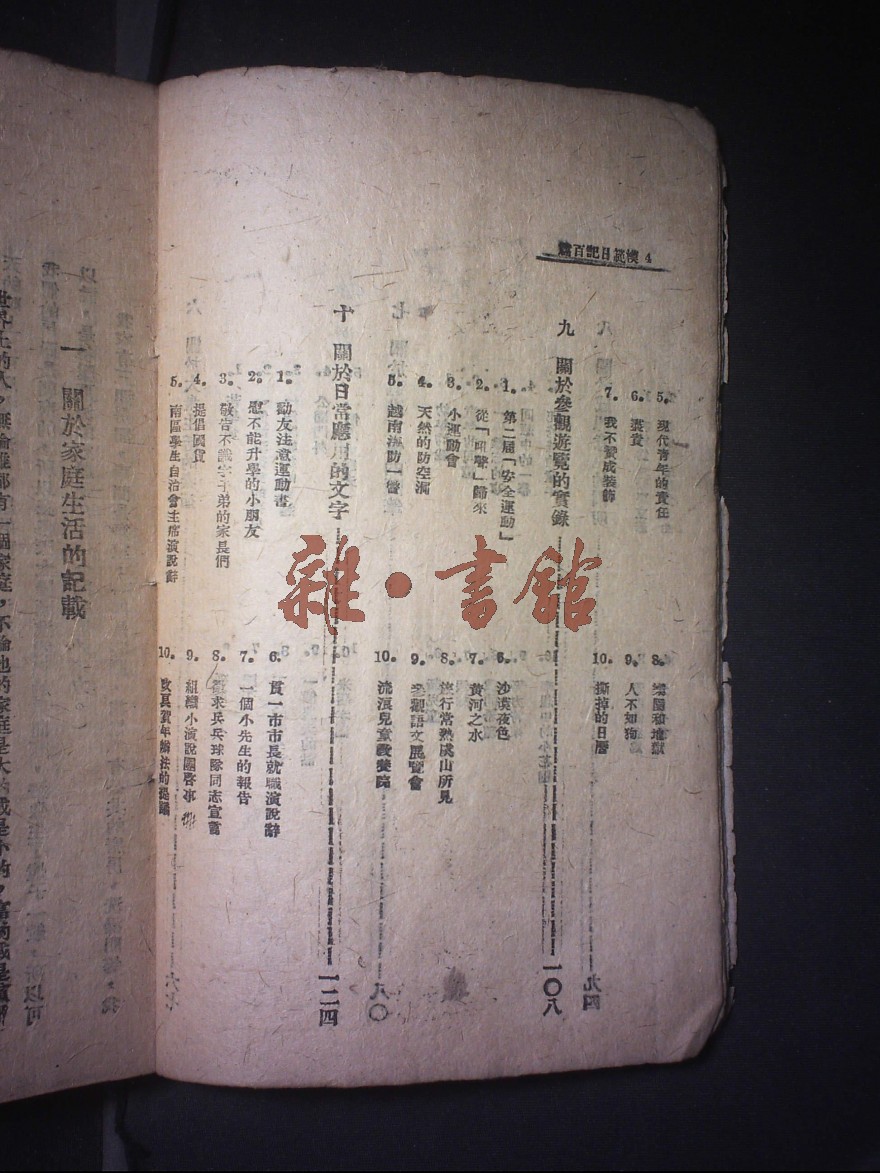 4 模範日記百篇
5. 現代青年的責任
6. 義賣
7. 我不贊成裝飾
8. 樂園和地獄
9. 人不如狗
10. 撕掉的日曆
九 關於參觀遊覽的實錄 一〇八
1. 第二屆「安全運動」
2. 從「吼聲」歸來
3. 小運動會
4. 天然的防空洞
5. 越南海防一瞥
6. 沙漠夜色
7. 黃河之水
8. 旅行常熟虞山所見
9. 參觀語文展覽會
10. 流浪兒童教養院
十 關於日常應用的文字 一二四
1. 勸友注意運動書
2. 慰不能升學的小朋友
3. 敬告不識字子弟的家長們
4. 提倡國貨
5. 南區學生自治會主席演說辭
6. 貫一市市長就職演說辭
7. 一個小先生的報告
8. 徵求乒乓球隊同志宣言
9. 組織小演說團啓事
10. 改良賀年辦法的提議
一 關於家庭生活的記載
世界上的人，無論誰都有一個家庭，不論他的家庭是大的或是小的，富的或是貧
雜·書館